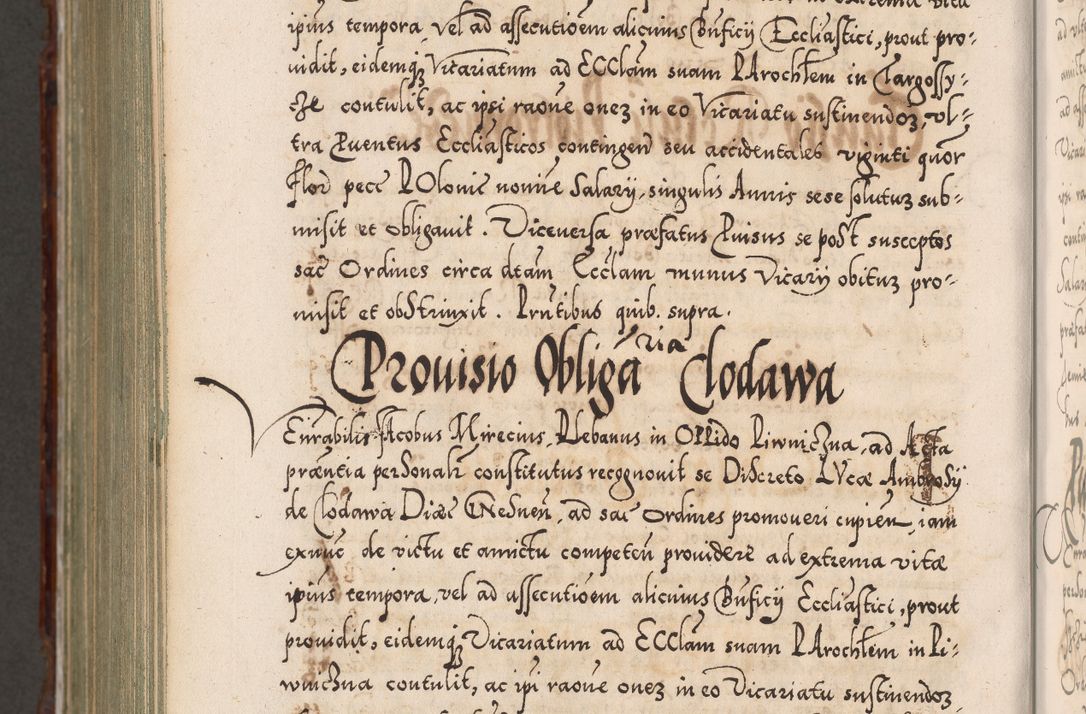 ipius tempora, vel ad assecutioem alicuius Bnficij Ecclīastici, prout pro-
uidit, eidemq3 Vicariatum ad ECClam suam PArochlem in Targossy-
ze contulit, ac ipsi raone one3 in eo Vicariatu sustinendo3, vl-
tra Puentus Eccliasticos contingen seu accidentales viginti quor
flor pecc POlonic nomine Salarij, singulis Annis sese solutu3 sub-
misit et Obligauit. Viceuersa præfatus Puisus se post susceptos
sac Ordines circa dtam Ecclam munus Vicarij obitu3 pro-
misit et obstrinxit. Prntibus quib. supra.
Prouisio Obliga ria Clodawa
VEnrabilis JAcobus Mirecius, Plebanus in OPPido Piwniczna, ad Acta
præntia personalr constitutus recognouit se Discreto LVcæ Ambrosij
de Clodawa Diæc GNesnen, ad sac Ordines promoueri cupien, iam
exnuc de victu et amictu competen prouidere ad extrema vitæ
ipius tempora, vel ad assecutioem alicuius Bnficij Eccliastici, prout
prouidit, eidemq3 Vicariatum ad ECClam suam PArochlem in Pi-
wniczna contulit, ac ipi raone one3 in eo Vicariatu sustinendo3